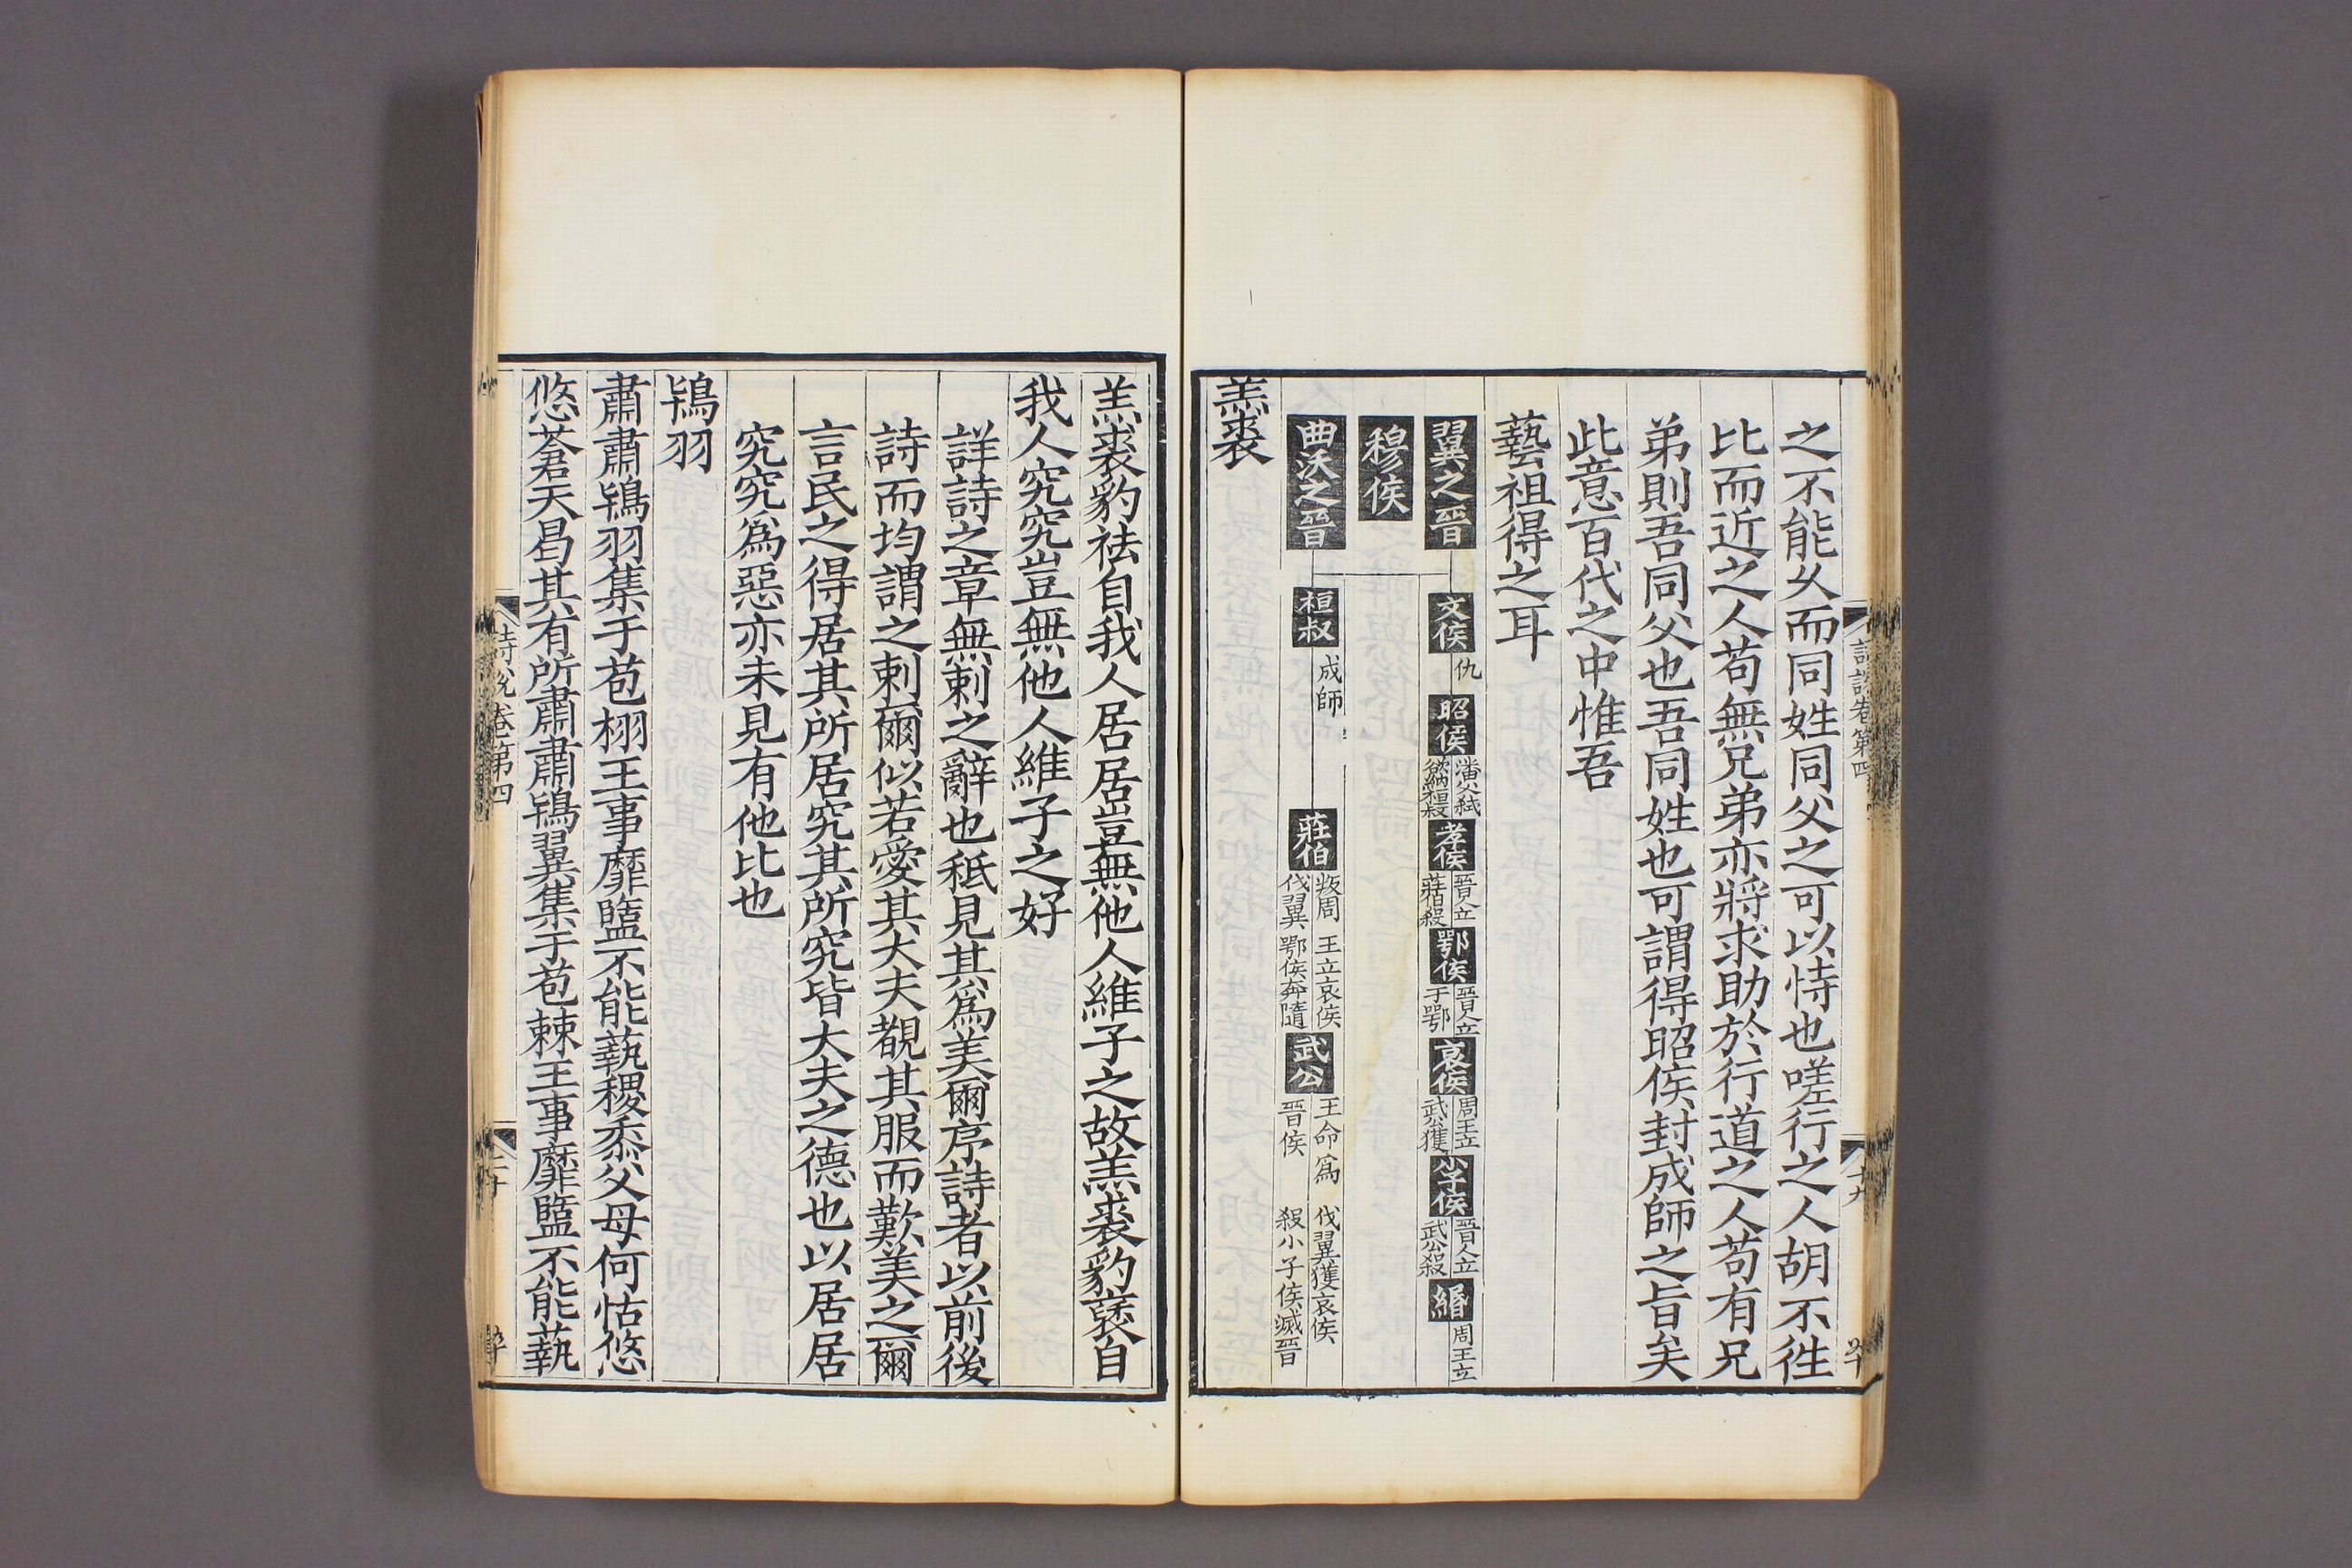 之不能乆而同姓同父之可以恃也嗟行之人胡不徃
比而近之人苟無兄弟亦將求助於行道之人苟有兄
弟則吾同父也吾同姓也可謂得昭侯封成師之旨矣
此意百代之中惟吾
藝祖得之耳
翼之晉 文侯 仇 昭侯 潘父弑 欲納桓叔 孝侯 晉人立 莊伯殺 鄂侯 晉人立 于鄂 哀侯 周王立 武公獲 小子侯 晉人立 武公殺 緡 周王立
穆侯
曲沃之晉 桓叔 成師 莊伯 叛周 王立哀侯 伐翼 鄂侯奔隨 武公 王命爲 晉侯 伐翼獲哀侯 殺小子侯滅晉
羔裘
詩說卷第四 十九
羔裘豹袪自我人居居豈無他人維子之故羔裘豹襃自
我人究究豈無他人維子之好
詳詩之章無刺之辭也秪見其爲美爾序詩者以前後
詩而均謂之刺爾似若愛其大夫覩其服而歎美之爾
言民之得居其所居究其所究皆大夫之德也以居居
究究爲惡亦未見有他比也
鴇羽
肅肅鴇羽集于苞栩王事靡盬不能蓺稷黍父母何怙悠
悠蒼天曷其有所肅肅鴇翼集于苞棘王事靡盬不能蓺
詩說卷第四 二十